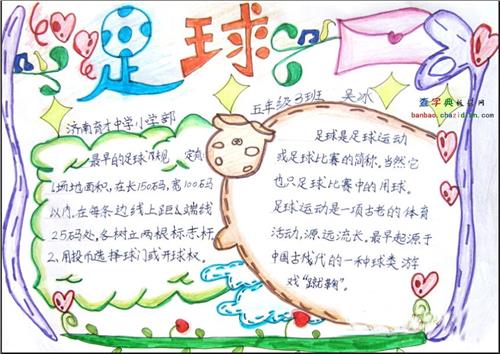 足球
五年级3班 吴冰
查字典板报网
banbao.chazidian.com
济南育才中学小学部
最早的足球 规 定
1.场地面积,在长150码,宽100码
以内,在每条边线上距&端线
25码处,各树立两根标志杆
2、用投币选择球门或开球权。
足球是足球运动
或足球比赛的简称,当然它
也只足球比赛中的用球。
足球运动是一项古老的体育
活动,源远流长,最早起源于
中国古代的一种球类游
戏“蹴鞠”。